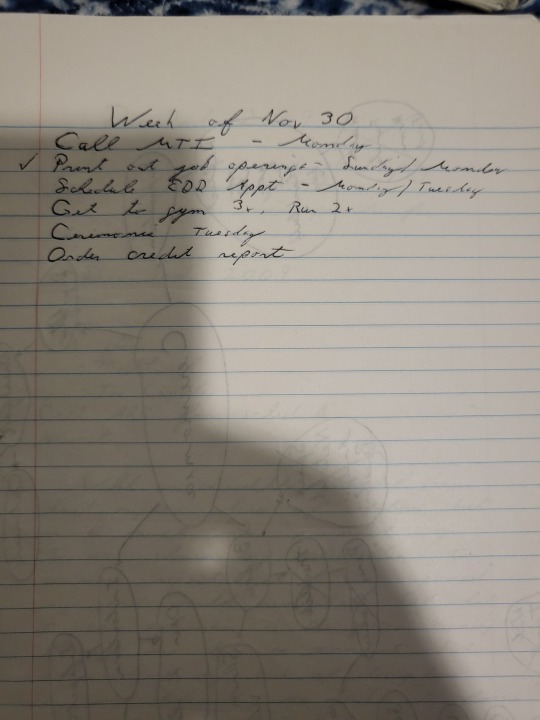 Week of Nov 30
Call MTI - Monday
✓ Print out job openings - Sunday/Monday
Schedule EDD Appt - Monday/Tuesday
Get to gym 3x, Run 2x
Tuesday
Order credit report